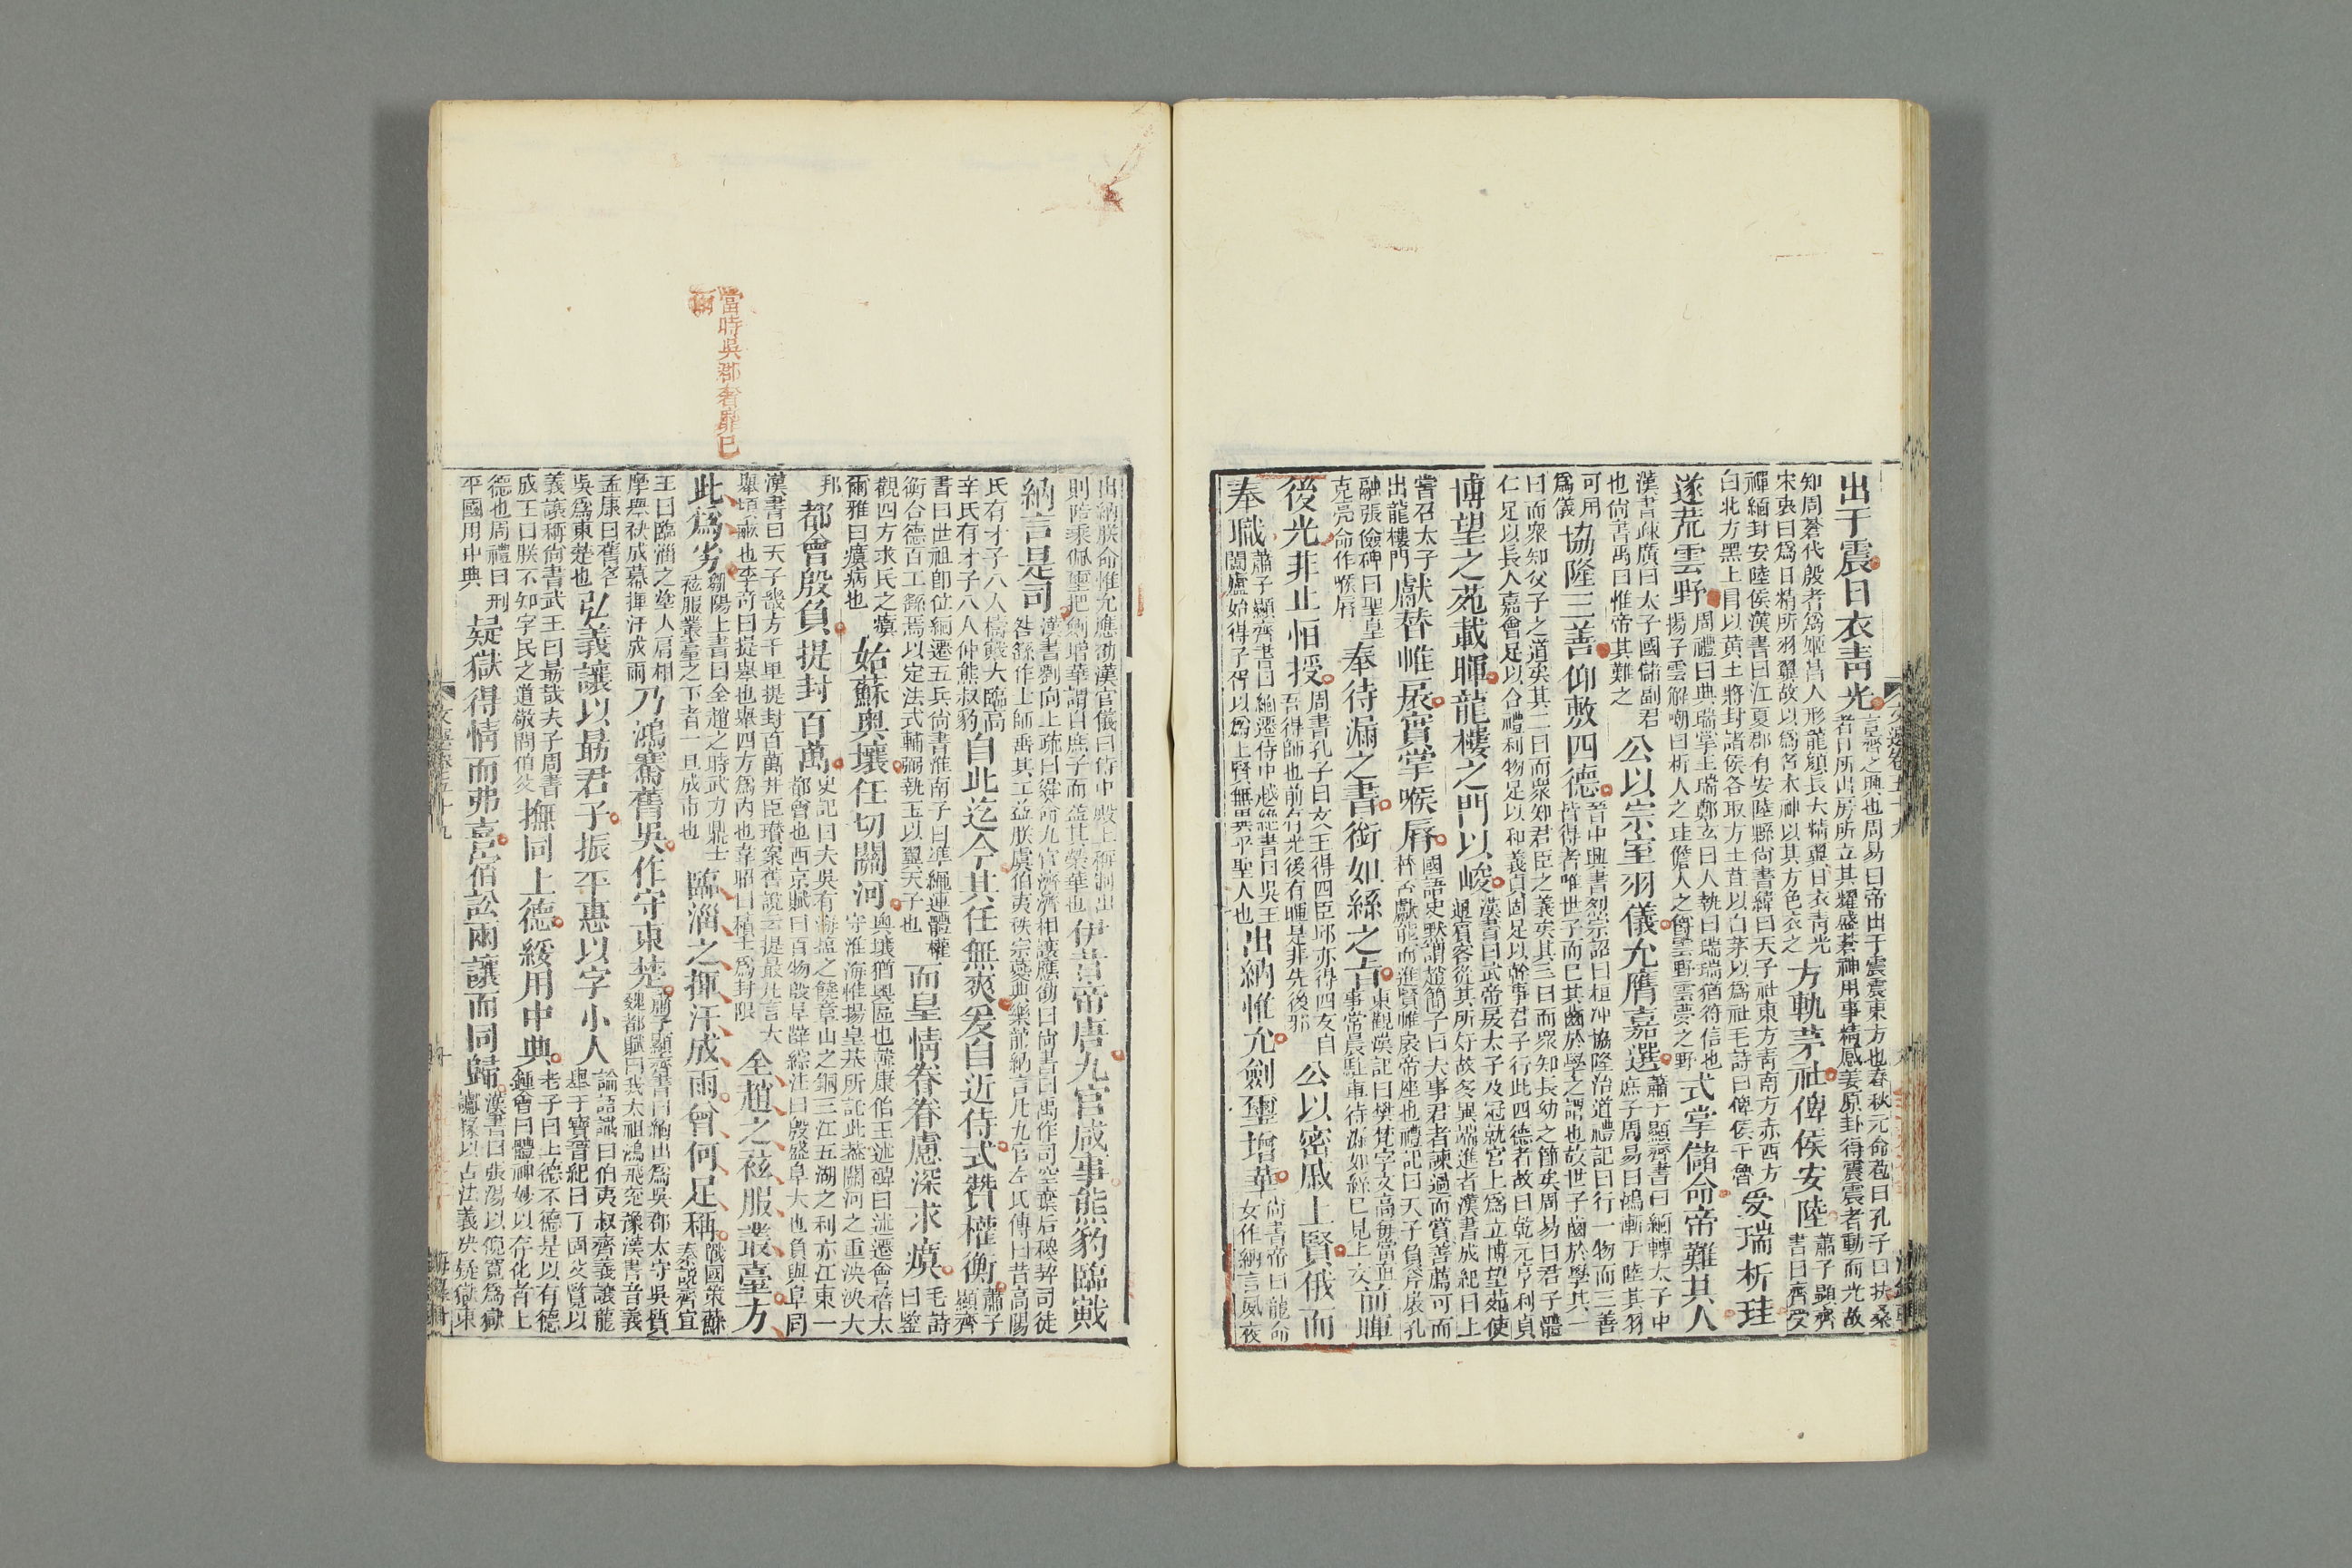 出于震日衣青光
言蒼之興也周易曰帝出于震震東方也春秋元命苞曰孔子曰扶桑
者日所出房所立其耀盛蒼神用事精感姜原卦得震震者動而光故
知周蒼代殷者為姬昌人形龍顏長大精翼日衣青光
宋衷曰為日精所羽翼故以為名木神以其方色衣之
方軌茅社俾侯安陸
蕭子顯齊
書曰齊受
禪緬封安陸侯漢書曰江夏郡有安陸縣尚書緯曰天子社東方青南方赤西方
白北方黑上冒以黃土將封諸侯各取方土苴以白茅以為社毛詩曰俾侯于魯
受瑞析珪
遂荒雲野
周禮曰典瑞掌玉瑞鄭玄曰人執曰瑞瑞猶符信也
揚子雲解嘲曰析人之珪儋人之爵雲野雲夢之野
式掌儲命帝難其人
漢書疎廣曰太子國儲副君
也尚書禹曰惟帝其難之
公以宗室羽儀允膺嘉選
蕭子顯齊書曰緬轉太子中
庶子周易曰鴻漸于陸其羽
可用
為儀
協隆三善仰敷四德
晉中興書烈宗詔曰桓沖協隆治道禮記曰行一物而三善
皆得者唯世子而已其齒於學之謂也故世子齒於學其一
曰而衆知父子之道矣其二曰而衆知君臣之義矣其三曰而衆知長幼之節矣周易曰君子體
仁足以長人嘉會足以合禮利物足以和義貞固足以幹事君子行此四德者故曰乾元亨利貞
博望之苑載暉龍樓之門以峻
漢書曰武帝戾太子及冠就宮上為立博望苑使
通賓客從其所好故多異端進者漢書成紀曰上
嘗召太子
出龍樓門
獻替帷扆實掌喉脣
國語史黯謂趙簡子曰夫事君者諫過而賞善薦可而
替否獻能而進賢帷扆帝座也禮記曰天子負斧扆孔
融張儉碑曰聖皇
克亮命作喉脣
奉待漏之書銜如絲之旨
東觀漢記曰樊梵字文高每當直
事常晨駐車待漏如絲已見上文
前暉
後光非止恒授
周書孔子曰文王得四臣邱亦得四友自
吾得師也前有光後有暉是非先後邪
公以密戚上賢俄而
奉職
蕭子顯齊書曰緬遷侍中越絕書曰吳王
闔廬始得子胥以為上賢無異乎聖人也
出納惟允劍璽增華
尚書帝曰龍命
女作納言夙夜
出納朕命惟允應劭漢官儀曰侍中殿上稱制出
則陪乘佩璽把劍增華謂自庶子而益其榮華也
伊昔帝唐九官咸事熊豹臨戴
納言是司
漢書劉向上疏曰舜命九官濟濟相讓應劭曰尚書曰禹作司空棄后稷契司徒
咎繇作士師垂共工益朕虞伯夷秩宗夔典樂龍納言凡九官左氏傳曰昔高陽
氏有才子八人檮戭大臨高
辛氏有才子八人仲熊叔豹
自此迄今其任無爽爰自近侍式贊權衡
蕭子
顯齊
書曰世祖即位緬遷五兵尚書淮南子曰準繩連體權
衡合德百工繇焉以定法式輔弼執玉以翼天子也
而皇情眷眷慮深求瘼
毛詩
曰鑒
觀四方求民之瘼
爾雅曰瘼病也
姑蘇奧壤任切關河
奧壤猶奧區也蔡康伯王述碑曰述遷會稽太
守淮海惟揚皇基所託此蓋關河之重泱泱大
邦
都會殷負提封百萬
史記曰夫吳有海鹽之饒章山之銅三江五湖之利亦江東一
都會也西京賦曰百物殷阜薛綜注曰殷盛阜大也負與阜同
漢書曰天子畿方千里提封百萬井臣瓚案舊說云提最凡言大
舉頃畝也李奇曰提舉也舉四方為內也韋昭曰積土為封限
全趙之袨服叢臺方
此為劣
鄒陽上書曰全趙之時武力鼎士
袨服叢臺之下者一旦成市也
臨淄之揮汗成雨曾何足稱
戰國策蘇
秦說齊宣
王曰臨淄之塗人肩相
摩舉袂成幕揮汗成雨
乃鴻騫舊吳作守東楚
蕭子顯齊書曰緬出為吳郡太守吳質
魏都賦曰我太祖鴻飛兗豫漢書音義
孟康曰舊名
吳為東楚也
弘義讓以勗君子振平惠以字小人
論語讖曰伯夷叔齊義讓龍
舉干寶晉紀曰丁固父覽以
義讓稱尚書武王曰勗哉夫子周書
成王曰朕不知字民之道敬問伯父
撫同上德綏用中典
老子曰上德不德是以有德
鍾會曰體神妙以存化者上
德也周禮曰刑
平國用中典
疑獄得情而弗喜宿訟兩讓而同歸
漢書曰張湯以倪寬為獄
讞掾以古法義決疑獄東
當時吳郡奢靡已
文選卷五十九